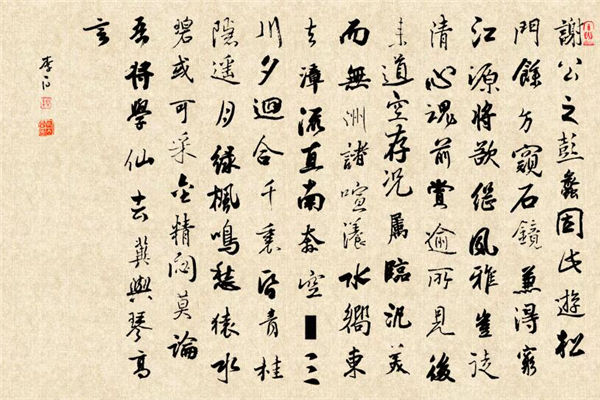 謝公之彭蠡因此遊松
門餘方窺石鏡兼得窮
江源將欲繼風雅豈徒
清心魂前賞逾所見後
来道空存況屬臨汎美
而無洲諸喧漾水嚮東
去漳流直南奔空三
川夕迴合千裏昏青桂
隱遥月緑楓鳴愁猿水
碧或可采金精閟莫論
吾將學仙去冀與琴高
言
李白